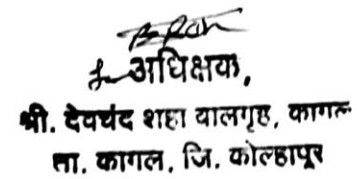 अधिक्षक,
श्री. देवचंद शहा बालगृह, कागल
ता. कागल, जि. कोल्हापूर